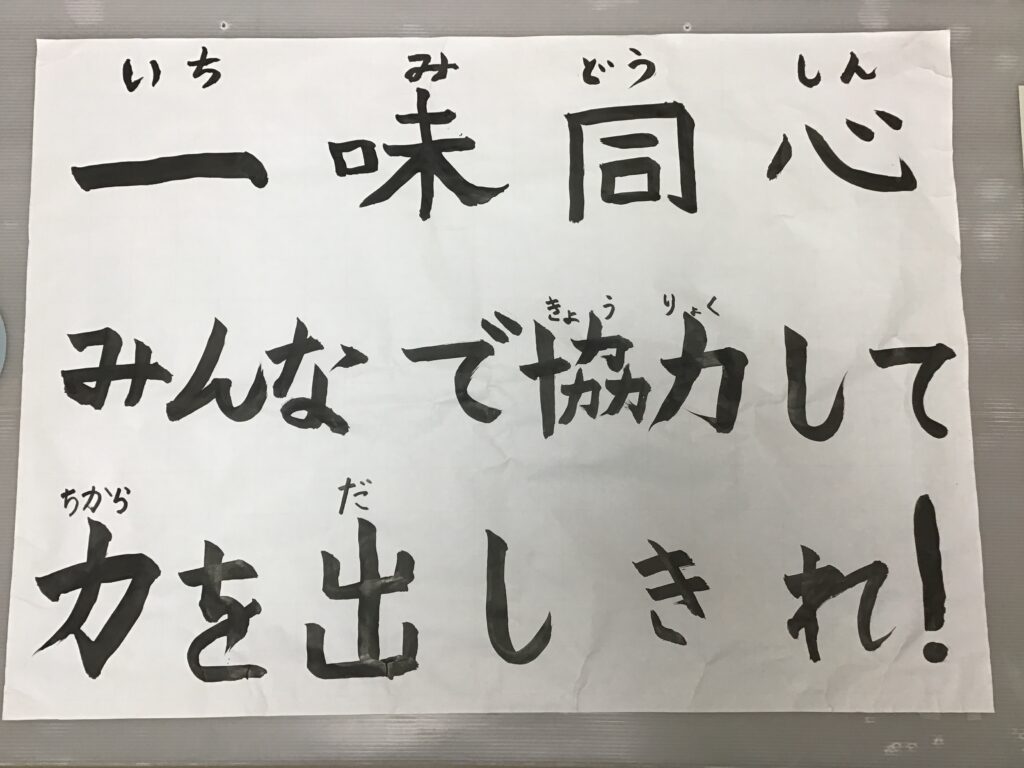 いち み どう しん
一味同心
きょう りょく
みんなで協力して
ちから だ
力を出しきれ!